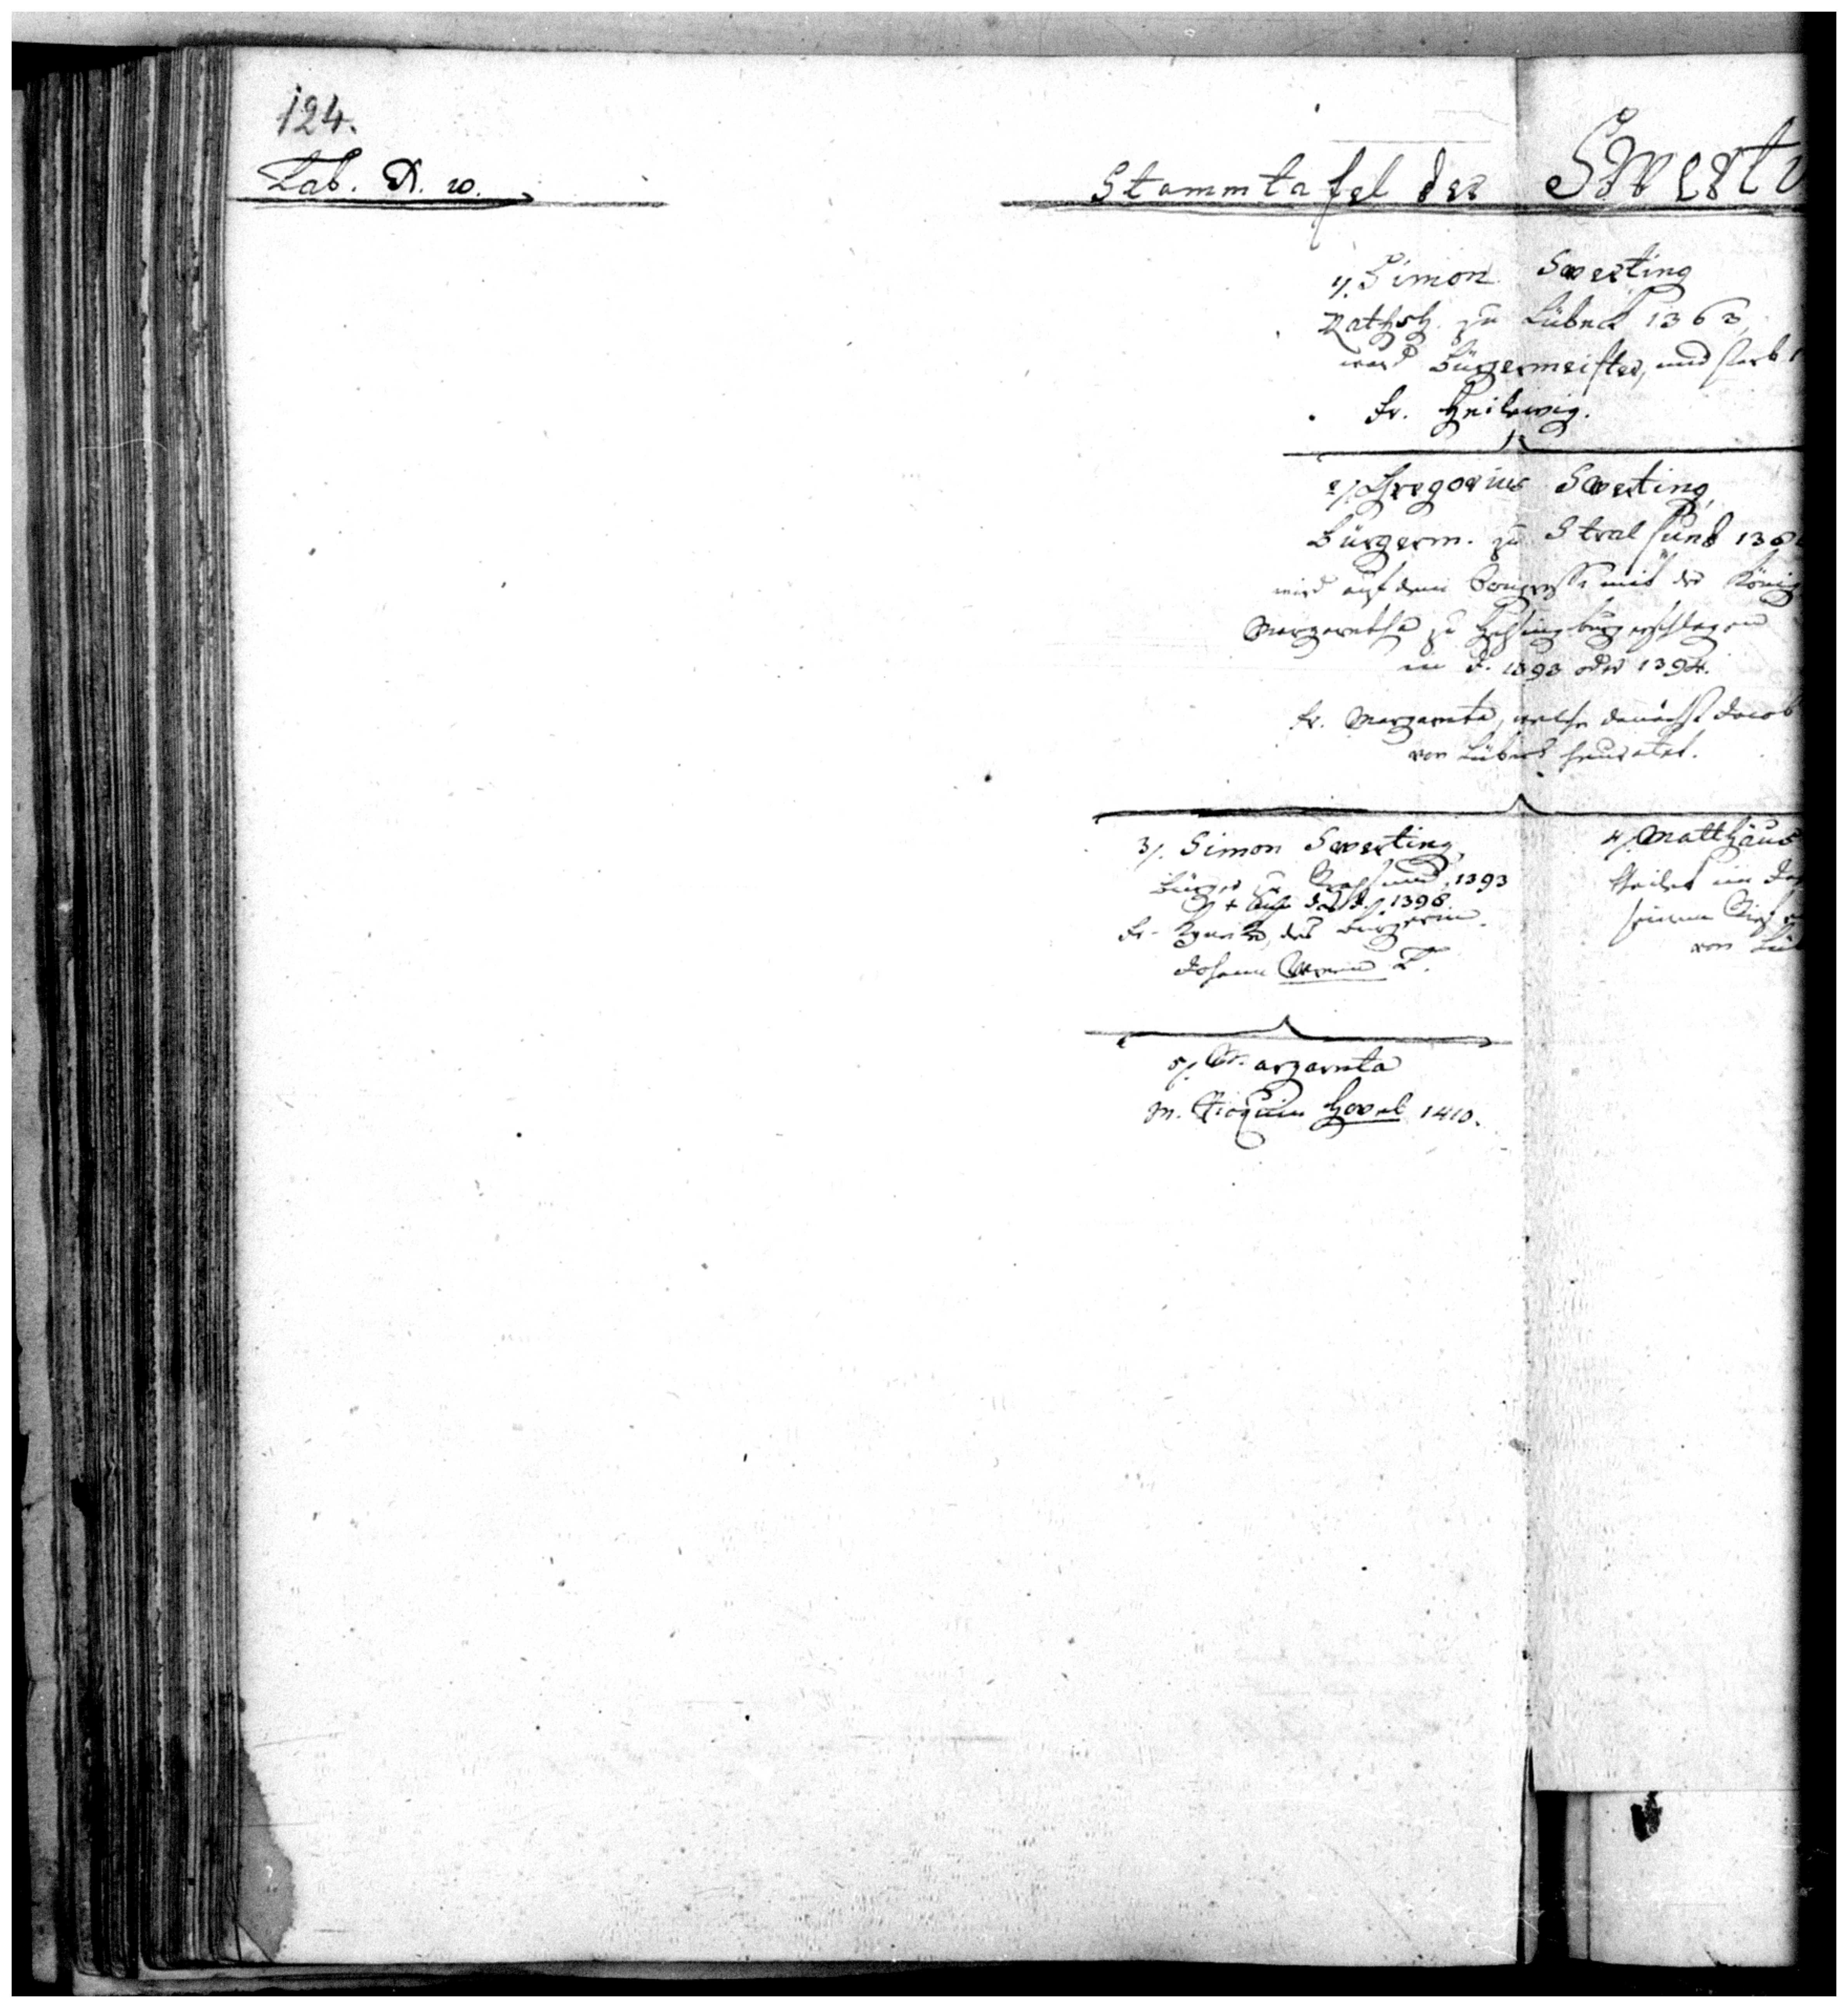 124.
Tab. N. 10.
Stammtafel der Swert
1/. Simon Swerting
Rathsh. zu Lübeck 1363,
ward Bürgermeister, und starb 1
Fr. Heilewig.
2/. Gregorius Swerting,
Bürgerm. zu Stralsund 138
wird auf dem Congresse mit der König
Margaretha zu Helsingburg erschlagen
im J. 1393 oder 1394.
Fr. Margareta, welche demnächst Jacob
von Lübeck heuratet.
3/. Simon Swerting,
Bürger zu Stralsund, 1393
1396
Fr. des Bürgerm.
Johann T.
4/. Matthäus
theilet im
seinem
von Lüb
5/. Margareta
M. Hovel 1410.